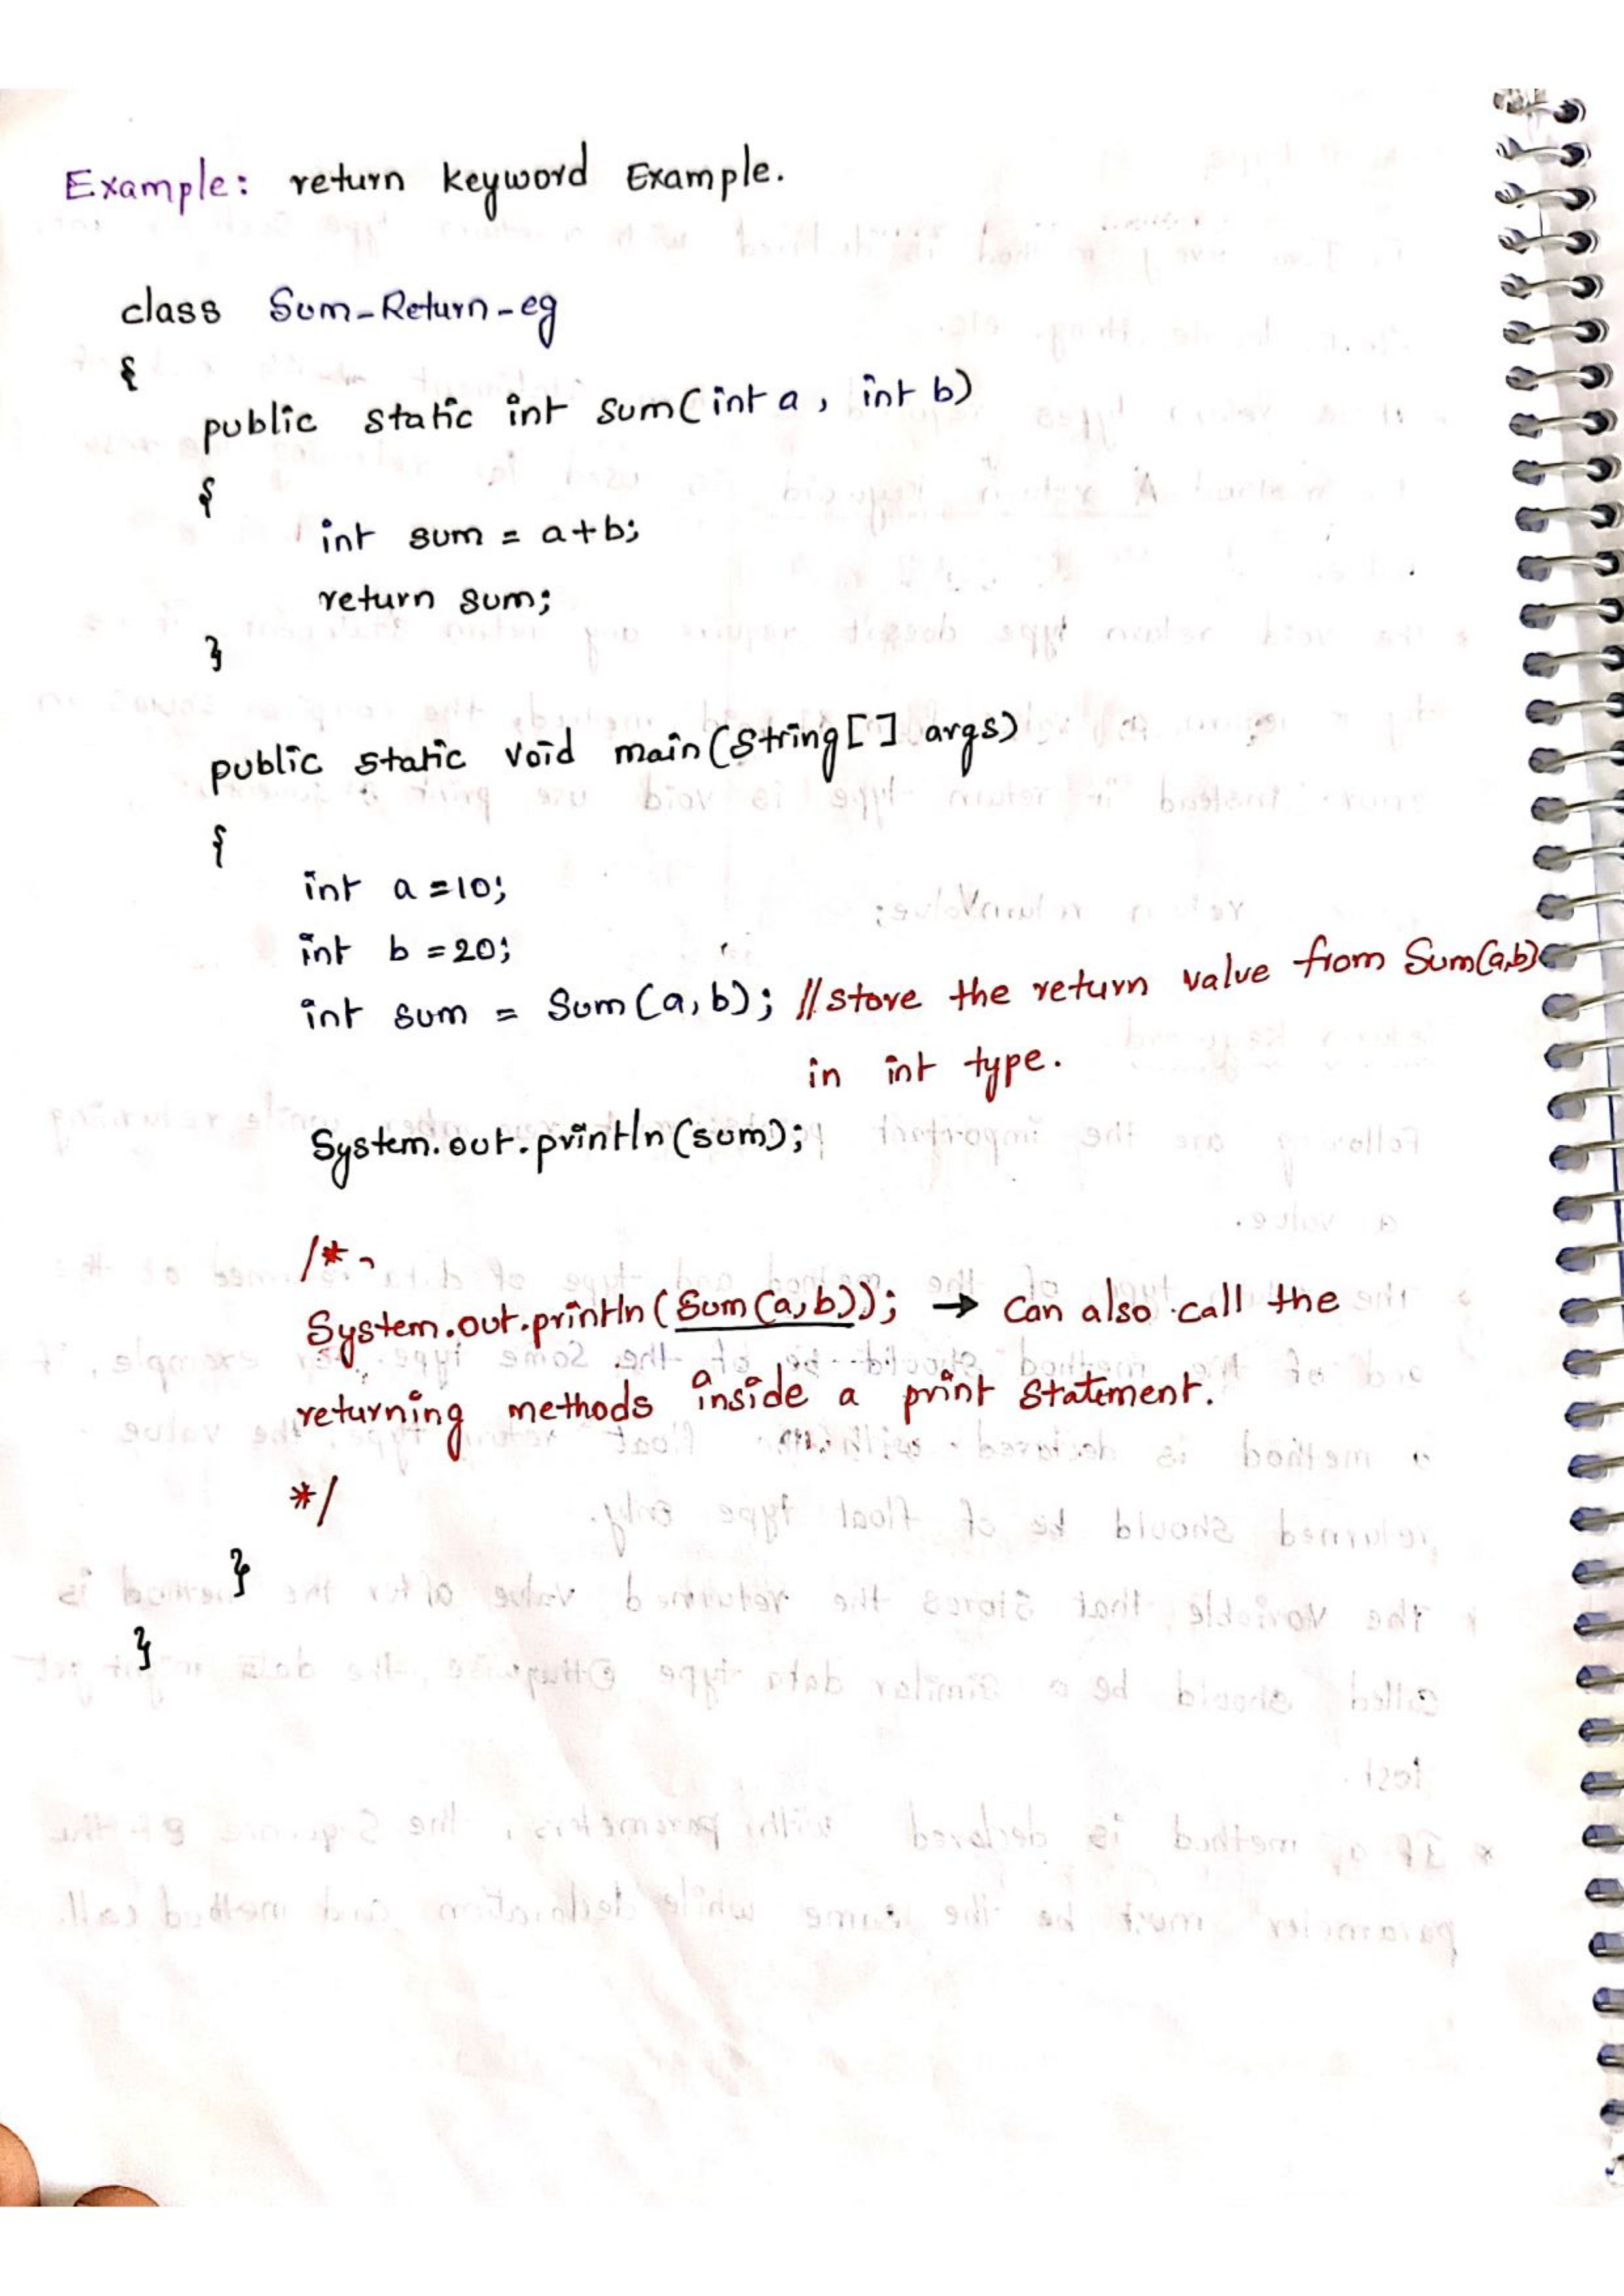 Example: return keyword Example.
class Sum_Return_eg
{
public static int sum(int a, int b)
{
int sum = a+b;
return sum;
}
public static void main(String[] args)
{
int a =10;
int b =20;
int sum = Sum(a,b); //store the return value from Sum(a,b)
in int type.
System.out.println(sum);
/*
System.out.println(Sum(a,b)); → can also call the
returning methods inside a print statement.
*/
}
}